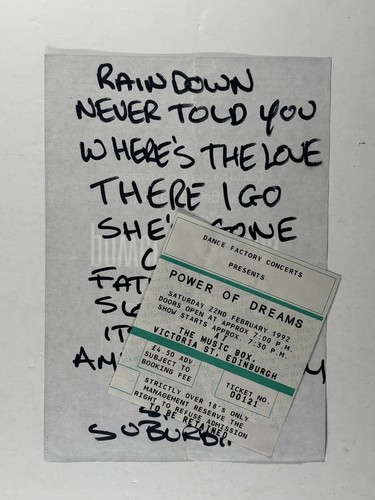 RAIN DOWN
NEVER TOLD YOU
WHERE'S THE LOVE
THERE I GO
SHE'S GONE
DANCE FACTORY CONCERTS
PRESENTS
POWER OF DREAMS
SATURDAY 22ND FEBRUARY 1992
DOORS OPEN AT APPROX 7:00 P.M.
SHOW STARTS APPROX. 7:30 P.M.
AT
THE MUSIC BOX,
VICTORIA ST, EDINBURGH
£4.50 ADV.
SUBJECT TO
BOOKING FEE
TICKET NO.
00121
STRICTLY OVER 18'S ONLY
MANAGEMENT RESERVE THE
RIGHT TO REFUSE ADMISSION
TO BE RETAINED